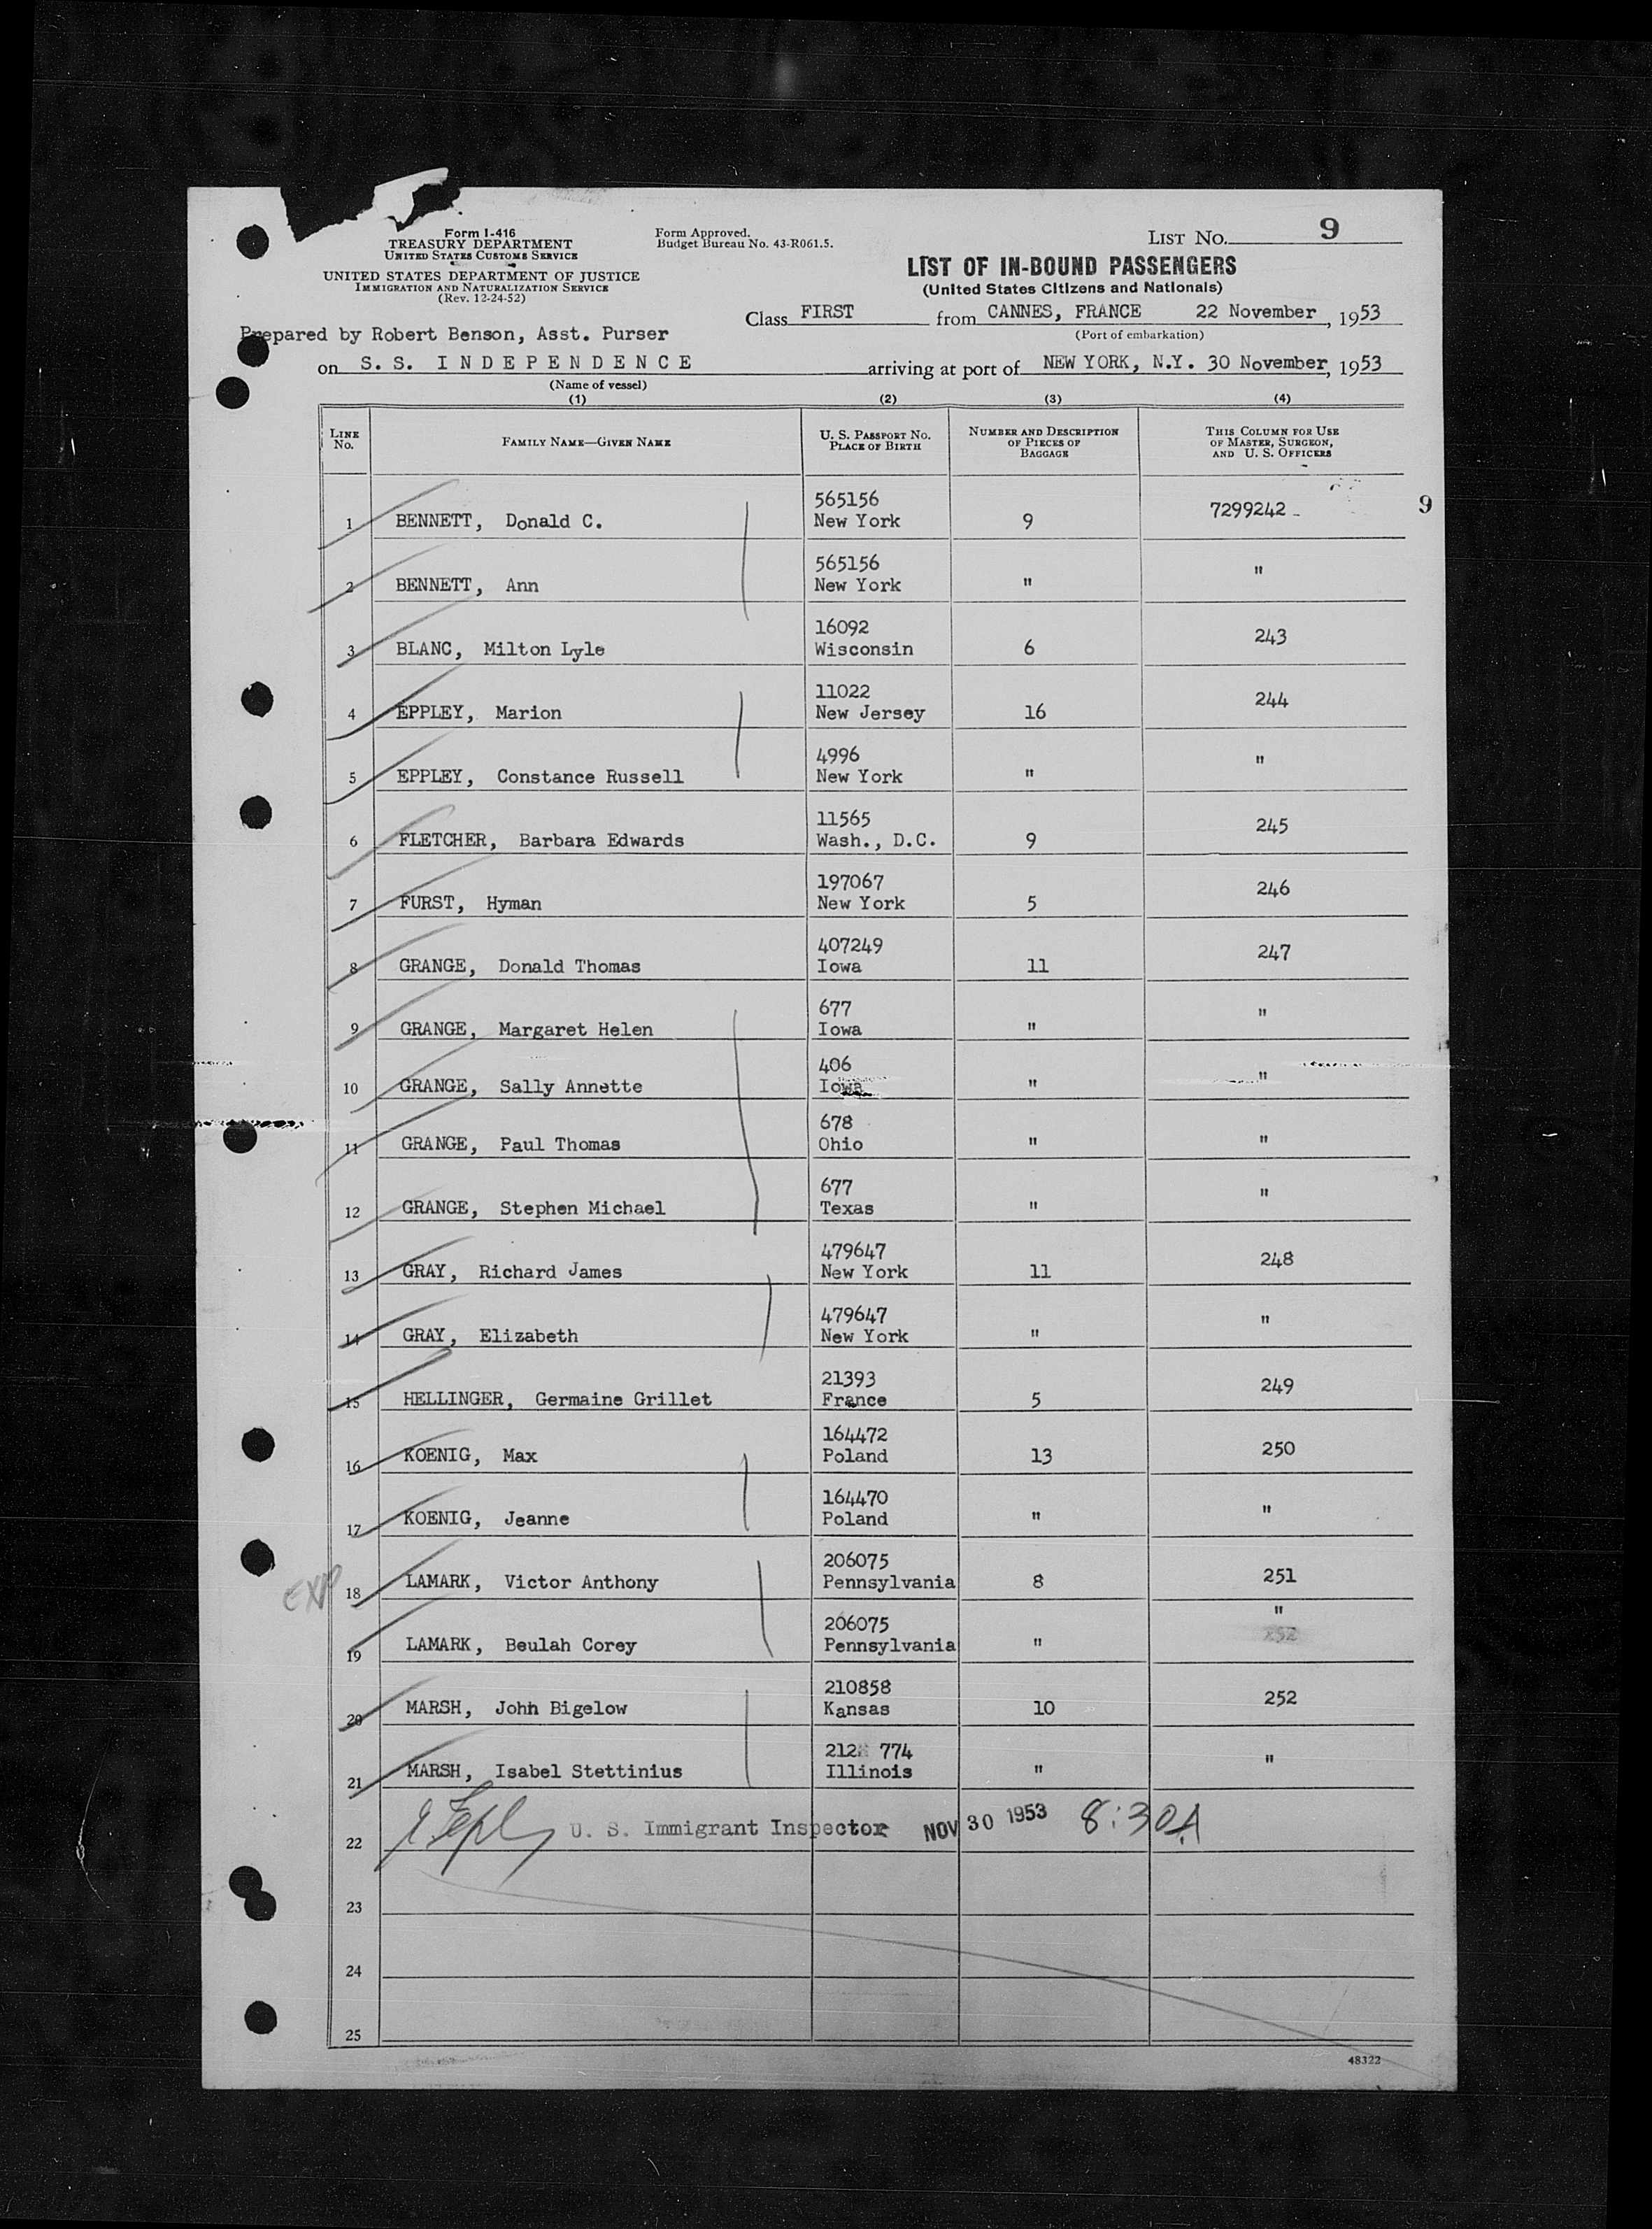 Form I-416
TREASURY DEPARTMENT
UNITED STATES CUSTOMS SERVICE
UNITED STATES DEPARTMENT OF JUSTICE
IMMIGRATION AND NATURALIZATION SERVICE
(Rev. 12-24-52)
Form Approved.
Budget Bureau No. 43-R061.5.
LIST NO. 9
LIST OF IN-BOUND PASSENGERS
(United States Citizens and Nationals)
Class FIRST from CANNES, FRANCE 22 November, 1953
(Port of embarkation)
Prepared by Robert Benson, Asst. Purser
on S. S. I N D E P E N D E N C E arriving at port of NEW YORK, N.Y. 30 November, 1953
(Name of vessel)
(1) (2) (3) (4)
LINE NO. FAMILY NAME—GIVEN NAME U. S. PASSPORT NO. PLACE OF BIRTH NUMBER AND DESCRIPTION OF PIECES OF BAGGAGE THIS COLUMN FOR USE OF MASTER, SURGEON, AND U. S. OFFICERS
565156
1 BENNETT, Donald C. New York 9 7299242 - 9
565156
2 BENNETT, Ann New York " "
16092
3 BLANC, Milton Lyle Wisconsin 6 243
11022
4 EPPLEY, Marion New Jersey 16 244
4996
5 EPPLEY, Constance Russell New York " "
11565
6 FLETCHER, Barbara Edwards Wash., D.C. 9 245
197067
7 FURST, Hyman New York 5 246
407249
8 GRANGE, Donald Thomas Iowa 11 247
677
9 GRANGE, Margaret Helen Iowa " "
406
10 GRANGE, Sally Annette Iowa " "
678
11 GRANGE, Paul Thomas Ohio " "
677
12 GRANGE, Stephen Michael Texas " "
479647
13 GRAY, Richard James New York 11 248
479647
14 GRAY, Elizabeth New York " "
21393
15 HELLINGER, Germaine Grillet France 5 249
164472
16 KOENIG, Max Poland 13 250
164470
17 KOENIG, Jeanne Poland " "
206075
EXP 18 LAMARK, Victor Anthony Pennsylvania 8 251
206075 "
19 LAMARK, Beulah Corey Pennsylvania " 252
210858
20 MARSH, John Bigelow Kansas 10 252
212 774
21 MARSH, Isabel Stettinius Illinois " "
22 U. S. Immigrant Inspector NOV 30 1953 8:30A
23
24
25
48322